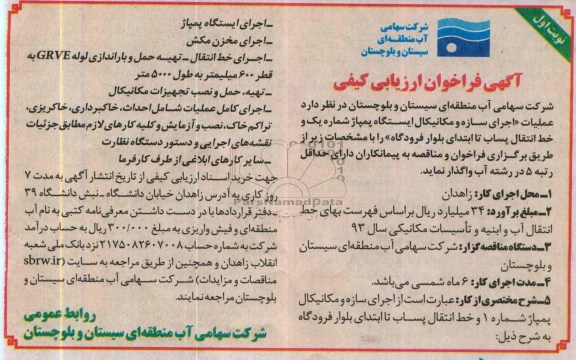 نوبت اول
شرکت سهامی
آب منطقه‌ای
سیستان و بلوچستان
آگهی فراخوان ارزیابی کیفی
شرکت سهامی آب منطقه‌ای سیستان و بلوچستان در نظر دارد
عملیات «اجرای سازه و مکانیکال ایستگاه پمپاژ شماره یک و
خط انتقال پساب تا ابتدای بلوار فرودگاه» را با مشخصات زیر از
طریق برگزاری فراخوان و مناقصه به پیمانکاران دارای حداقل
رتبه ۵ در رشته آب واگذار نماید.
۱ـ محل اجرای کار: زاهدان
۲ـ مبلغ برآورد: ۳۴ میلیارد ریال براساس فهرست بهای خط
انتقال آب و ابنیه و تأسیسات مکانیکی سال ۹۳
۳ـ دستگاه مناقصه‌گزار: شرکت سهامی آب منطقه‌ای سیستان
و بلوچستان
۴ـ مدت اجرای کار: ۶ ماه شمسی می‌باشد.
۵ـ شرح مختصری از کار: عبارت است از اجرای سازه و مکانیکال
پمپاژ شماره ۱ و خط انتقال پساب تا ابتدای بلوار فرودگاه
به شرح ذیل:
ـ اجرای ایستگاه پمپاژ
ـ اجرای مخزن مکش
ـ اجرای خط انتقال ـ تهیه حمل و باراندازی لوله GRVE به
قطر ۶۰۰ میلیمتر به طول ۵۰۰۰ متر
ـ تهیه، حمل و نصب تجهیزات مکانیکال
ـ اجرای کامل عملیات شامل احداث، خاکبرداری، خاکریزی،
تراکم خاک، نصب و آزمایش و کلیه کارهای لازم مطابق جزئیات
نقشه‌های اجرایی و دستور دستگاه نظارت
ـ سایر کارهای ابلاغی از طرف کارفرما
جهت خرید اسناد ارزیابی کیفی از تاریخ انتشار آگهی به مدت ۷
روز کاری به آدرس زاهدان خیابان دانشگاه ـ نبش دانشگاه ۳۹
ـ دفتر قراردادها با در دست داشتن معرفی‌نامه کتبی به نام آب
منطقه‌ای و فیش واریزی به مبلغ ۳۰۰/۰۰۰ ریال به حساب درآمد
شرکت به شماره حساب ۲۱۷۵۰۸۲۶۰۷۰۰۸ نزد بانک ملی شعبه
انقلاب زاهدان و همچنین از طریق مراجعه به سایت (sbrw.ir
مناقصات و مزایدات) شرکت سهامی آب منطقه‌ای سیستان و
بلوچستان مراجعه نمایند.
روابط عمومی
شرکت سهامی آب منطقه‌ای سیستان و بلوچستان
ParsNamadData